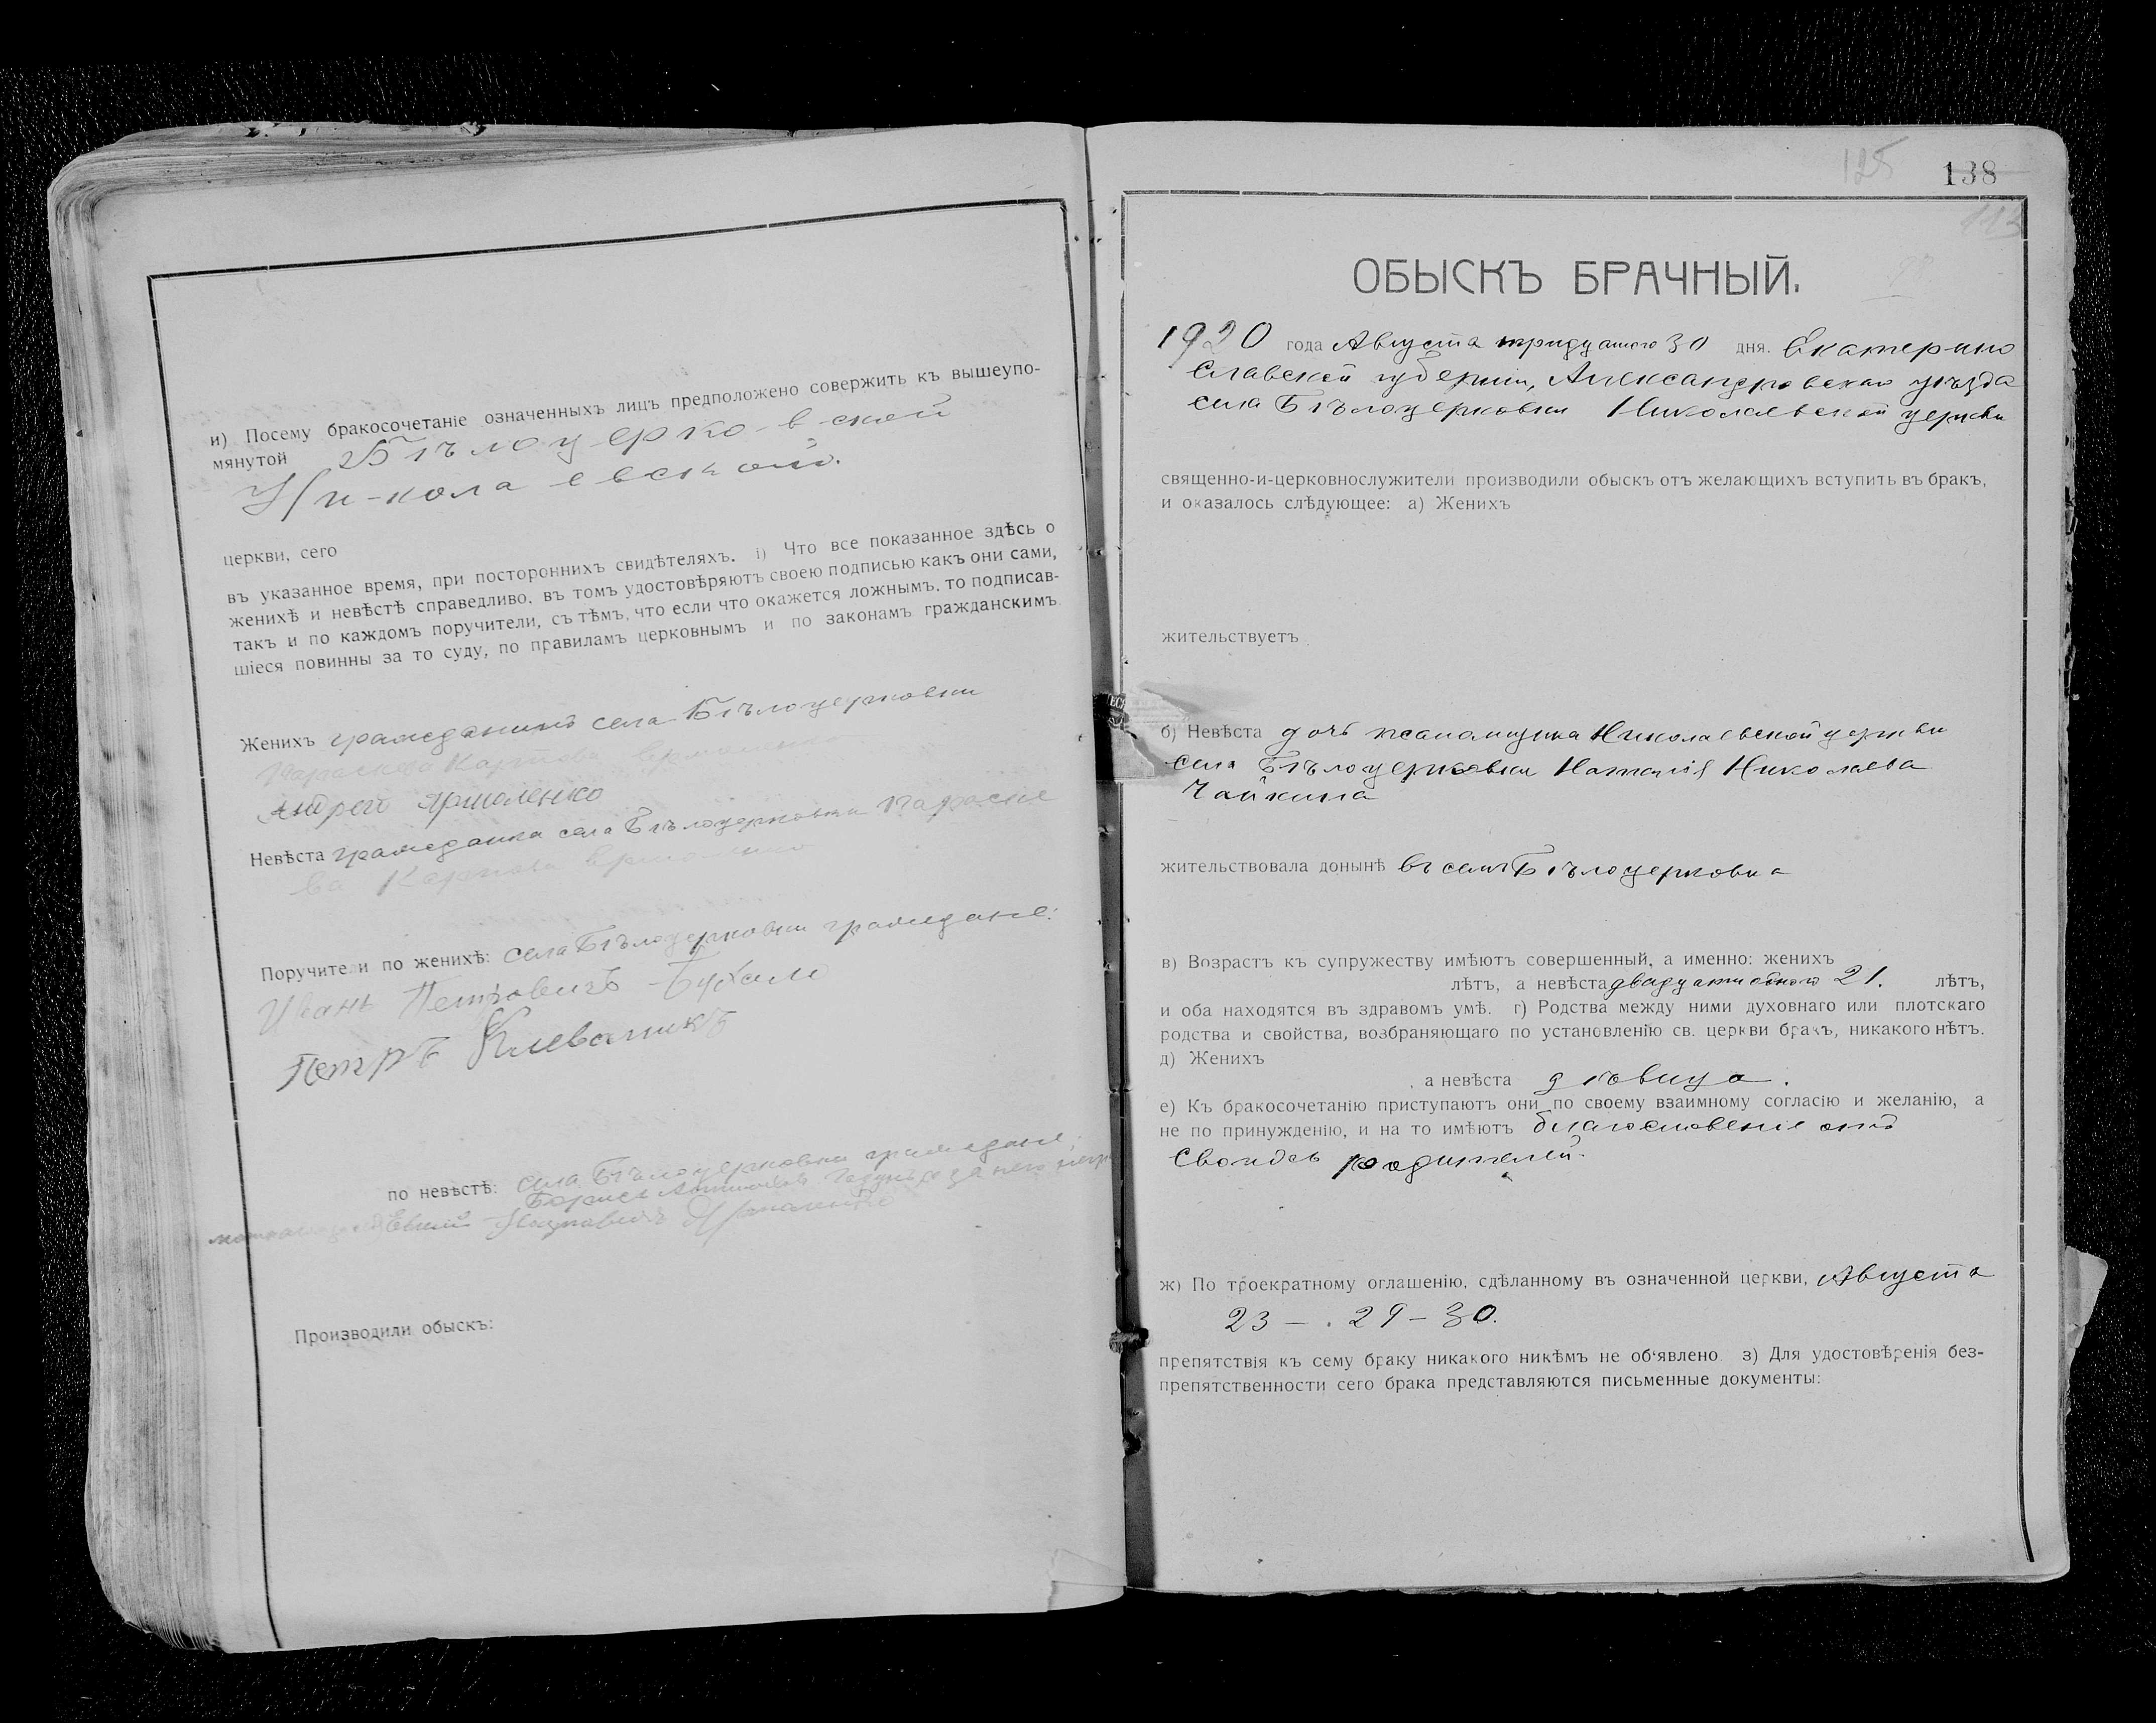 и) Посему бракосочетаніе означенныхъ лицъ предположено совержить къ вышеупо-
мянутой Бѣлоцерковской
Николаевской.
церкви, сего
въ указанное время, при постороннихъ свидѣтеляхъ. і) Что все показанное здѣсь о
женихѣ и невѣстѣ справедливо, въ томъ удостовѣряютъ своею подписью какъ они сами,
такъ и по каждомъ поручители, съ тѣмъ, что если что окажется ложнымъ, то подписав-
шіеся повинны за то суду, по правиламъ церковнымъ и по законамъ гражданскимъ.
Женихъ гражданинъ села Бѣлоцерковки
Андрего Ярмоленко
Невѣста гражданка села Бѣлоцерковки Параске
ва Карпова
Поручители по женихѣ: села Бѣлоцерковки граждане:
Иванъ Петровичъ
Петръ
по невѣстѣ: села Бѣлоцерковки граждане;
Борисъ
Производили обыскъ:
125
138
ОБЫСКЪ БРАЧНЫЙ.
1920 года Августа тридцатого 30 дня. Екатерино
славской губерніи, Александровскаго уѣзда
села Бѣлоцерковки Николаевской церкви
священно-и-церковнослужители производили обыскъ отъ желающихъ вступить въ бракъ,
и оказалось слѣдующее: а) Женихъ
жительствуетъ
б) Невѣста дочь псаломщика Николаевской церкви
села Бѣлоцерковки Наталія Николаева
Чайкина
жительствовала донынѣ въ селѣ Бѣлоцерковка
в) Возрастъ къ супружеству имѣютъ совершенный, а именно: женихъ
лѣтъ, а невѣста двадцати одного 21. лѣтъ,
и оба находятся въ здравомъ умѣ. г) Родства между ними духовнаго или плотскаго
родства и свойства, возбраняющаго по установленію св. церкви бракъ, никакого нѣтъ.
д) Женихъ
, а невѣста дѣвица.
е) Къ бракосочетанію приступаютъ они по своему взаимному согласію и желанію, а
не по принужденію, и на то имѣютъ благословеніе отъ
своихъ родителей.
ж) По троекратному оглашенію, сдѣланному въ означенной церкви, Августа
23 – . 29 – 30.
препятствія къ сему браку никакого никѣмъ не об‘явлено. з) Для удостовѣренія без-
препятственности сего брака представляются письменные документы: